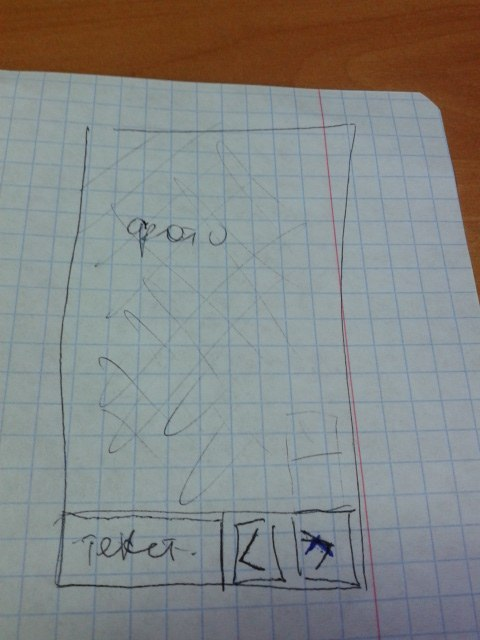 фото
текст.
<